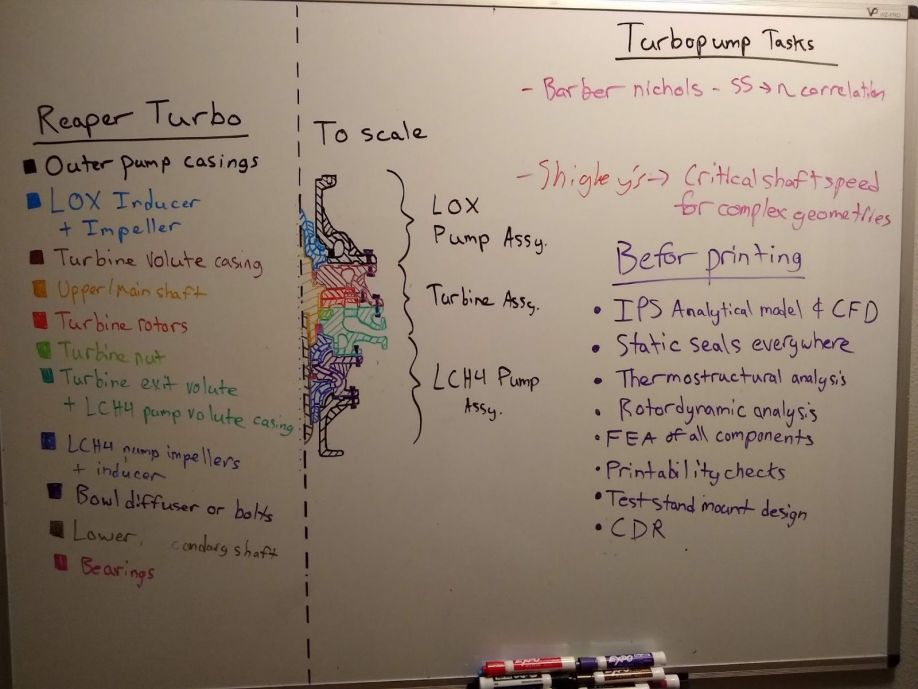 Reaper Turbo
Outer pump casings
LOX Inducer
+ Impeller
Turbine volute casing
Upper/main shaft
Turbine rotors
Turbine nut
Turbine exit volute
+ LCH4 pump volute casing
LCH4 pump impellers
+ inducer
Bowl diffuser or bolts
Lower, condary shaft
Bearings
To scale
LOX
Pump Assy.
Turbine Assy.
LCH4 Pump
Assy.
Turbopump Tasks
- Barber nichols - SS → n correlation
- Shigley's → Critical shaft speed
for complex geometries
Befor printing
• IPS Analytical model & CFD
• Static seals everywhere
• Thermostructural analysis
• Rotordynamic analysis
• FEA of all components
• Printability checks
• Test stand mount design
• CDR
EXPO
EXPO